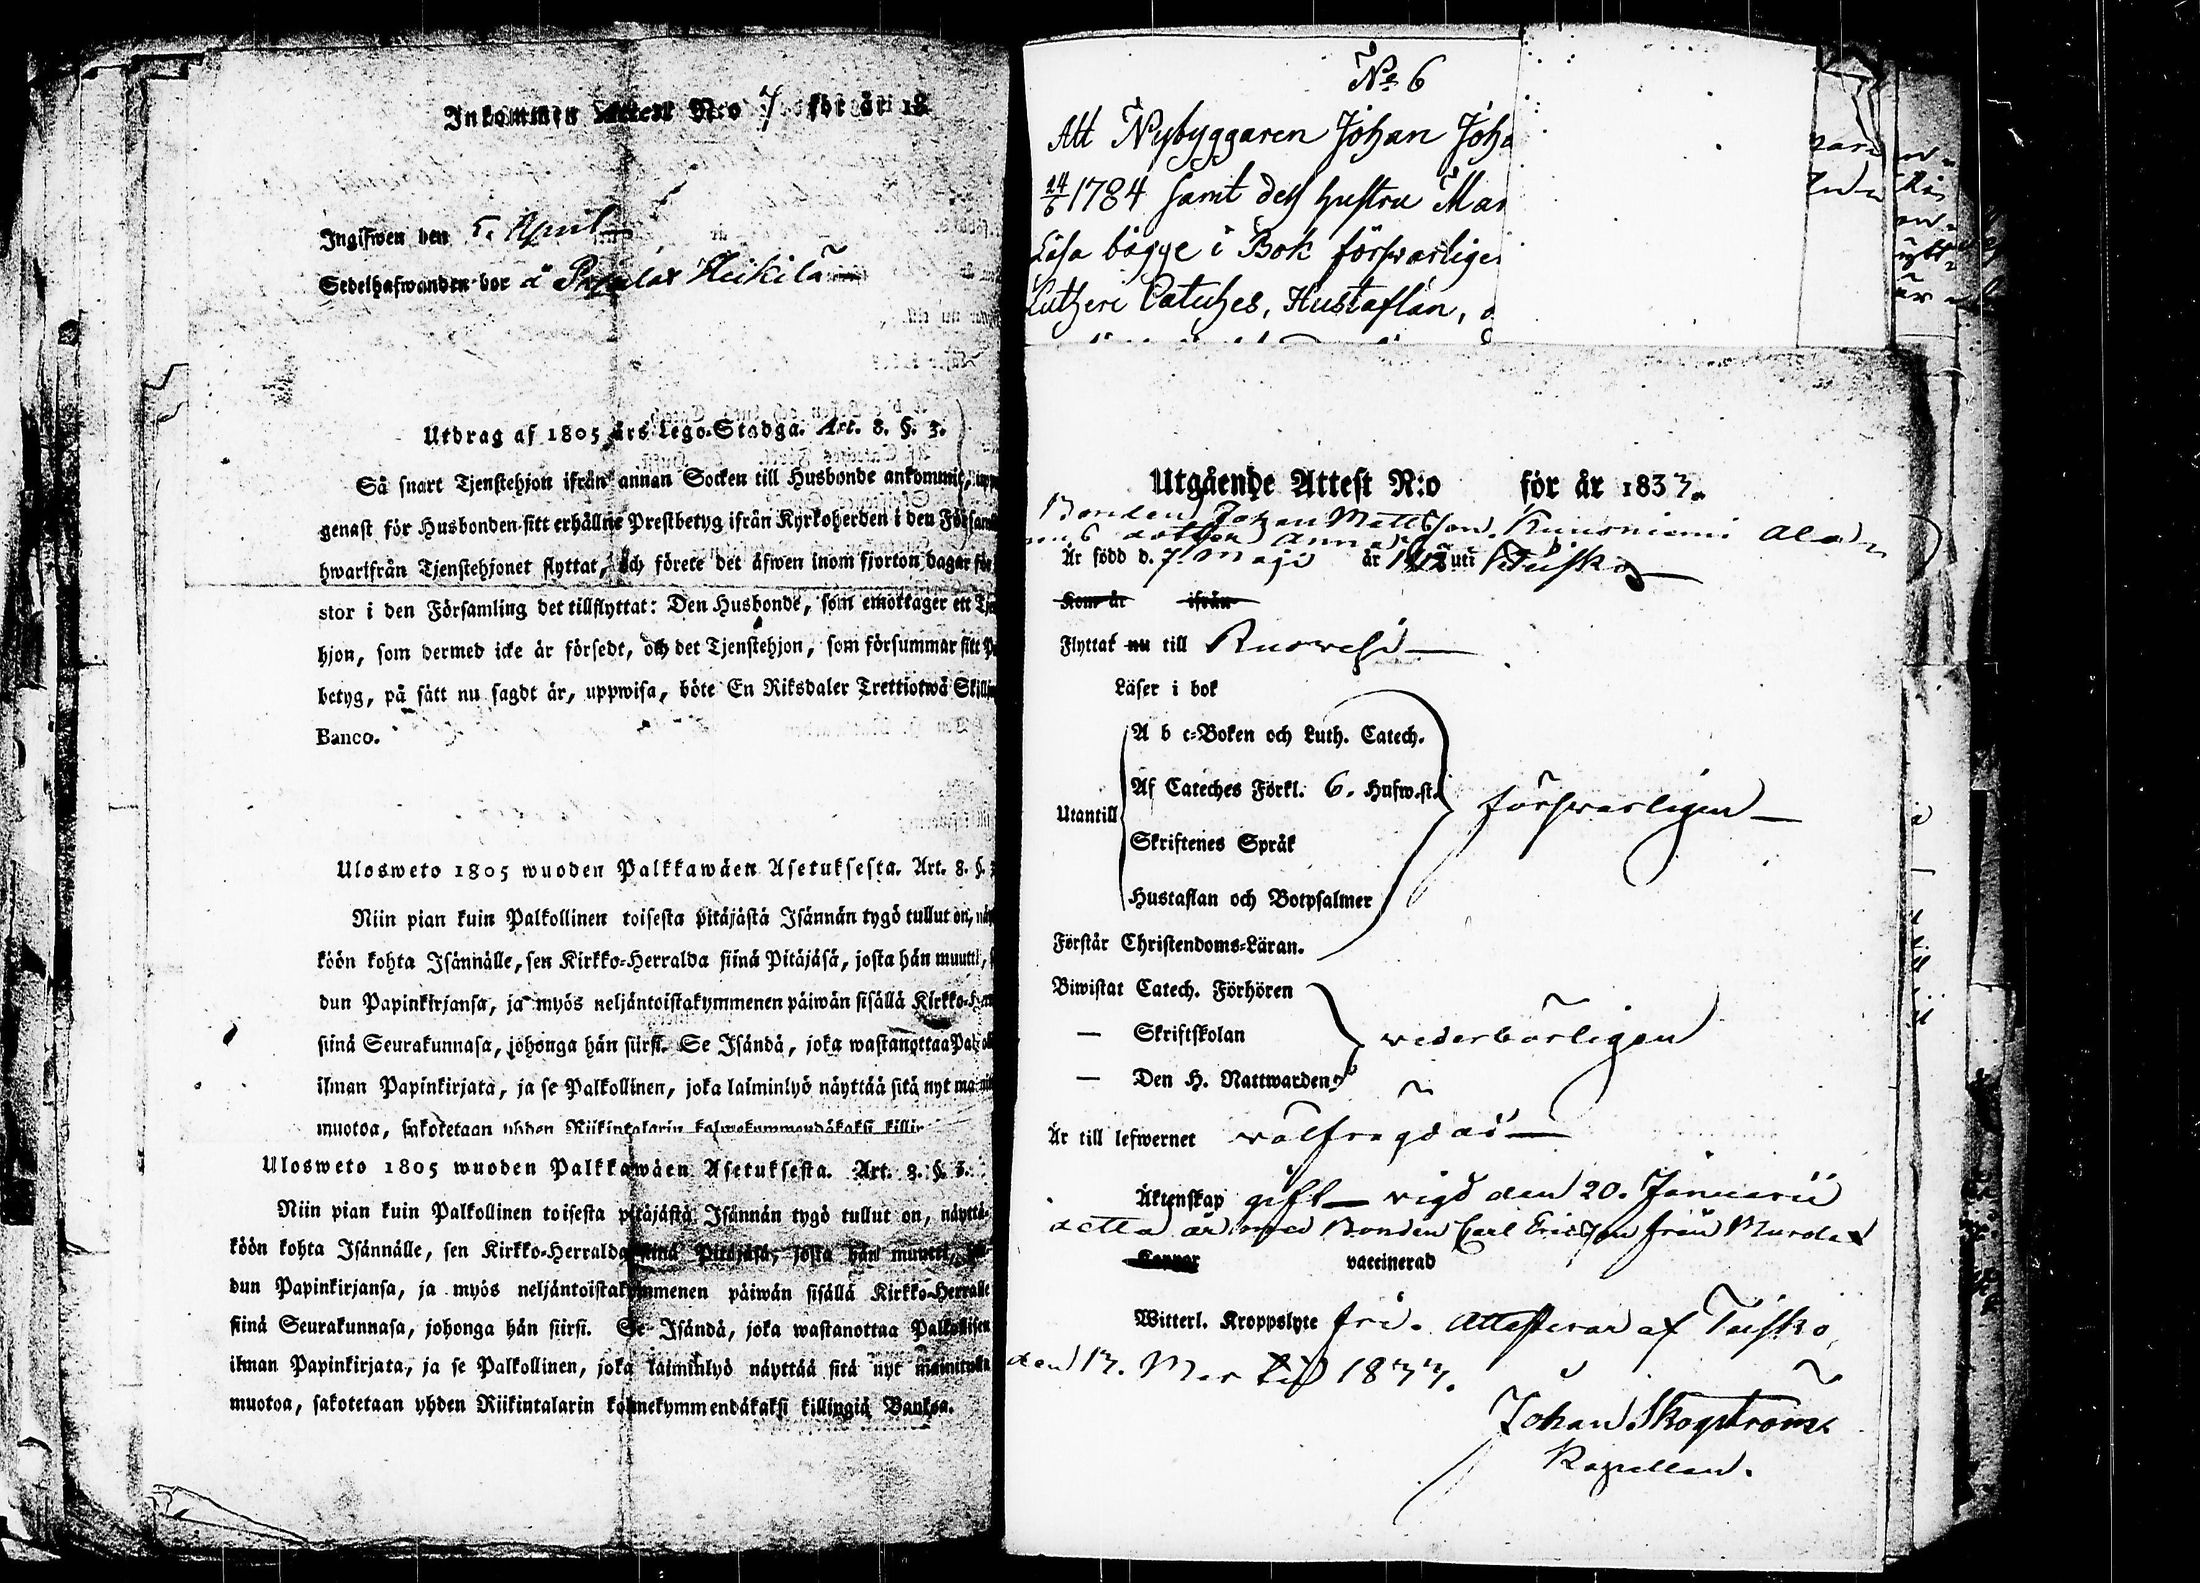 Inkommen Attest N:o 7 för år 18
Ingifwen den 5. April
Sedelhafwanden bor å Heikilä
Utdrag af 1805 års Lego-Stadga. Art. 8. §. 3.
Så snart Tjenstehjon ifrån annan Socken till Husbonde ankommit, upp
genast för Husbonden sitt erhållne Prestbetyg ifrån Kyrkoherden i den Försam
hwarifrån Tjenstehjonet flyttat, och förete det äfwen inom fjorton dagar för
stor i den Församling det tillflyttat: Den Husbonde, som emottager ett Tjen
hjon, som dermed icke är försedt, och det Tjenstehjon, som försummar sitt P
betyg, på sätt nu sagdt är, uppwisa, böte En Riksdaler Trettiotwå Skillin
Banco.
Ulosweto 1805 wuoden Palkkawäen Asetuksesta. Art. 8. §. 3
Niin pian kuin Palkollinen toisesta pitäjästä Isännän tygö tullut on, näy
köön kohta Isännälle, sen Kirkko-Herralda siinä Pitäjäsä, josta hän muutti, s
dun Papinkirjansa, ja myös neljäntoistakymmenen päiwän sisällä Kirkko-Her
siinä Seurakunnasa, johonga hän siirsi. Se Isändä, joka wastanottaa Palkoll
ilman Papinkirjata, ja se Palkollinen, joka laiminlyö näyttää sitä nyt mainit
muotoa, sakotetaan yhden Riikintalarin kolmekymmendäkaksi killin
Ulosweto 1805 wuoden Palkkawäen Asetuksesta. Art. 8. §. 3.
Niin pian kuin Palkollinen toisesta pitäjästä Isännän tygö tullut on, näyttä-
köön kohta Isännälle, sen Kirkko-Herralda siinä Pitäjäsä, josta hän muutti,
dun Papinkirjansa, ja myös neljäntoistakymmenen päiwän sisällä Kirkko-Herralle
siinä Seurakunnasa, johonga hän siirsi. Se Isändä, joka wastanottaa Palkollisen
ilman Papinkirjata, ja se Palkollinen, joka laiminlyö näyttää sitä nyt mainittuka
muotoa, sakotetaan yhden Riikintalarin kolmekymmendäkaksi killingiä Bankoa.
No 6
Att Nybyggaren Johan Joha
24/6 1784 samt dess hustru Mar
Läsa bägge i Bok förswarligen
Lutheri Catches, Hustaflan, o
Utgående Attest N:o för år 1833.
Bonden Johan Mattsson Kunoniemi
dotter Anna
Är född d. 7 Maji år 1812 uti Teisko
Kom år ifrån
Flyttat nu till Ruowesi
Läser i bok
A b c-Boken och Luth. Catech.
Af Cateches Förkl. 6. Hufw.st.
Utantill förswarligen
Skriftenes Språk
Hustaflan och Botpsalmer
Förstår Christendoms-Läran.
Biwistat Catech. Förhören
— Skriftskolan wederbörligen
— Den H. Nattwarden
Är till lefwernet wälfrägdad
Äktenskap gift wigd den 20. Januarii
detta år med Bonden Carl Ericsson från Murole
Koppor vaccinerad
Witterl. Kroppslyte fri. Attesterar af Teisko,
den 17. Martii 1833.
Johan Skogström
Kapellan.